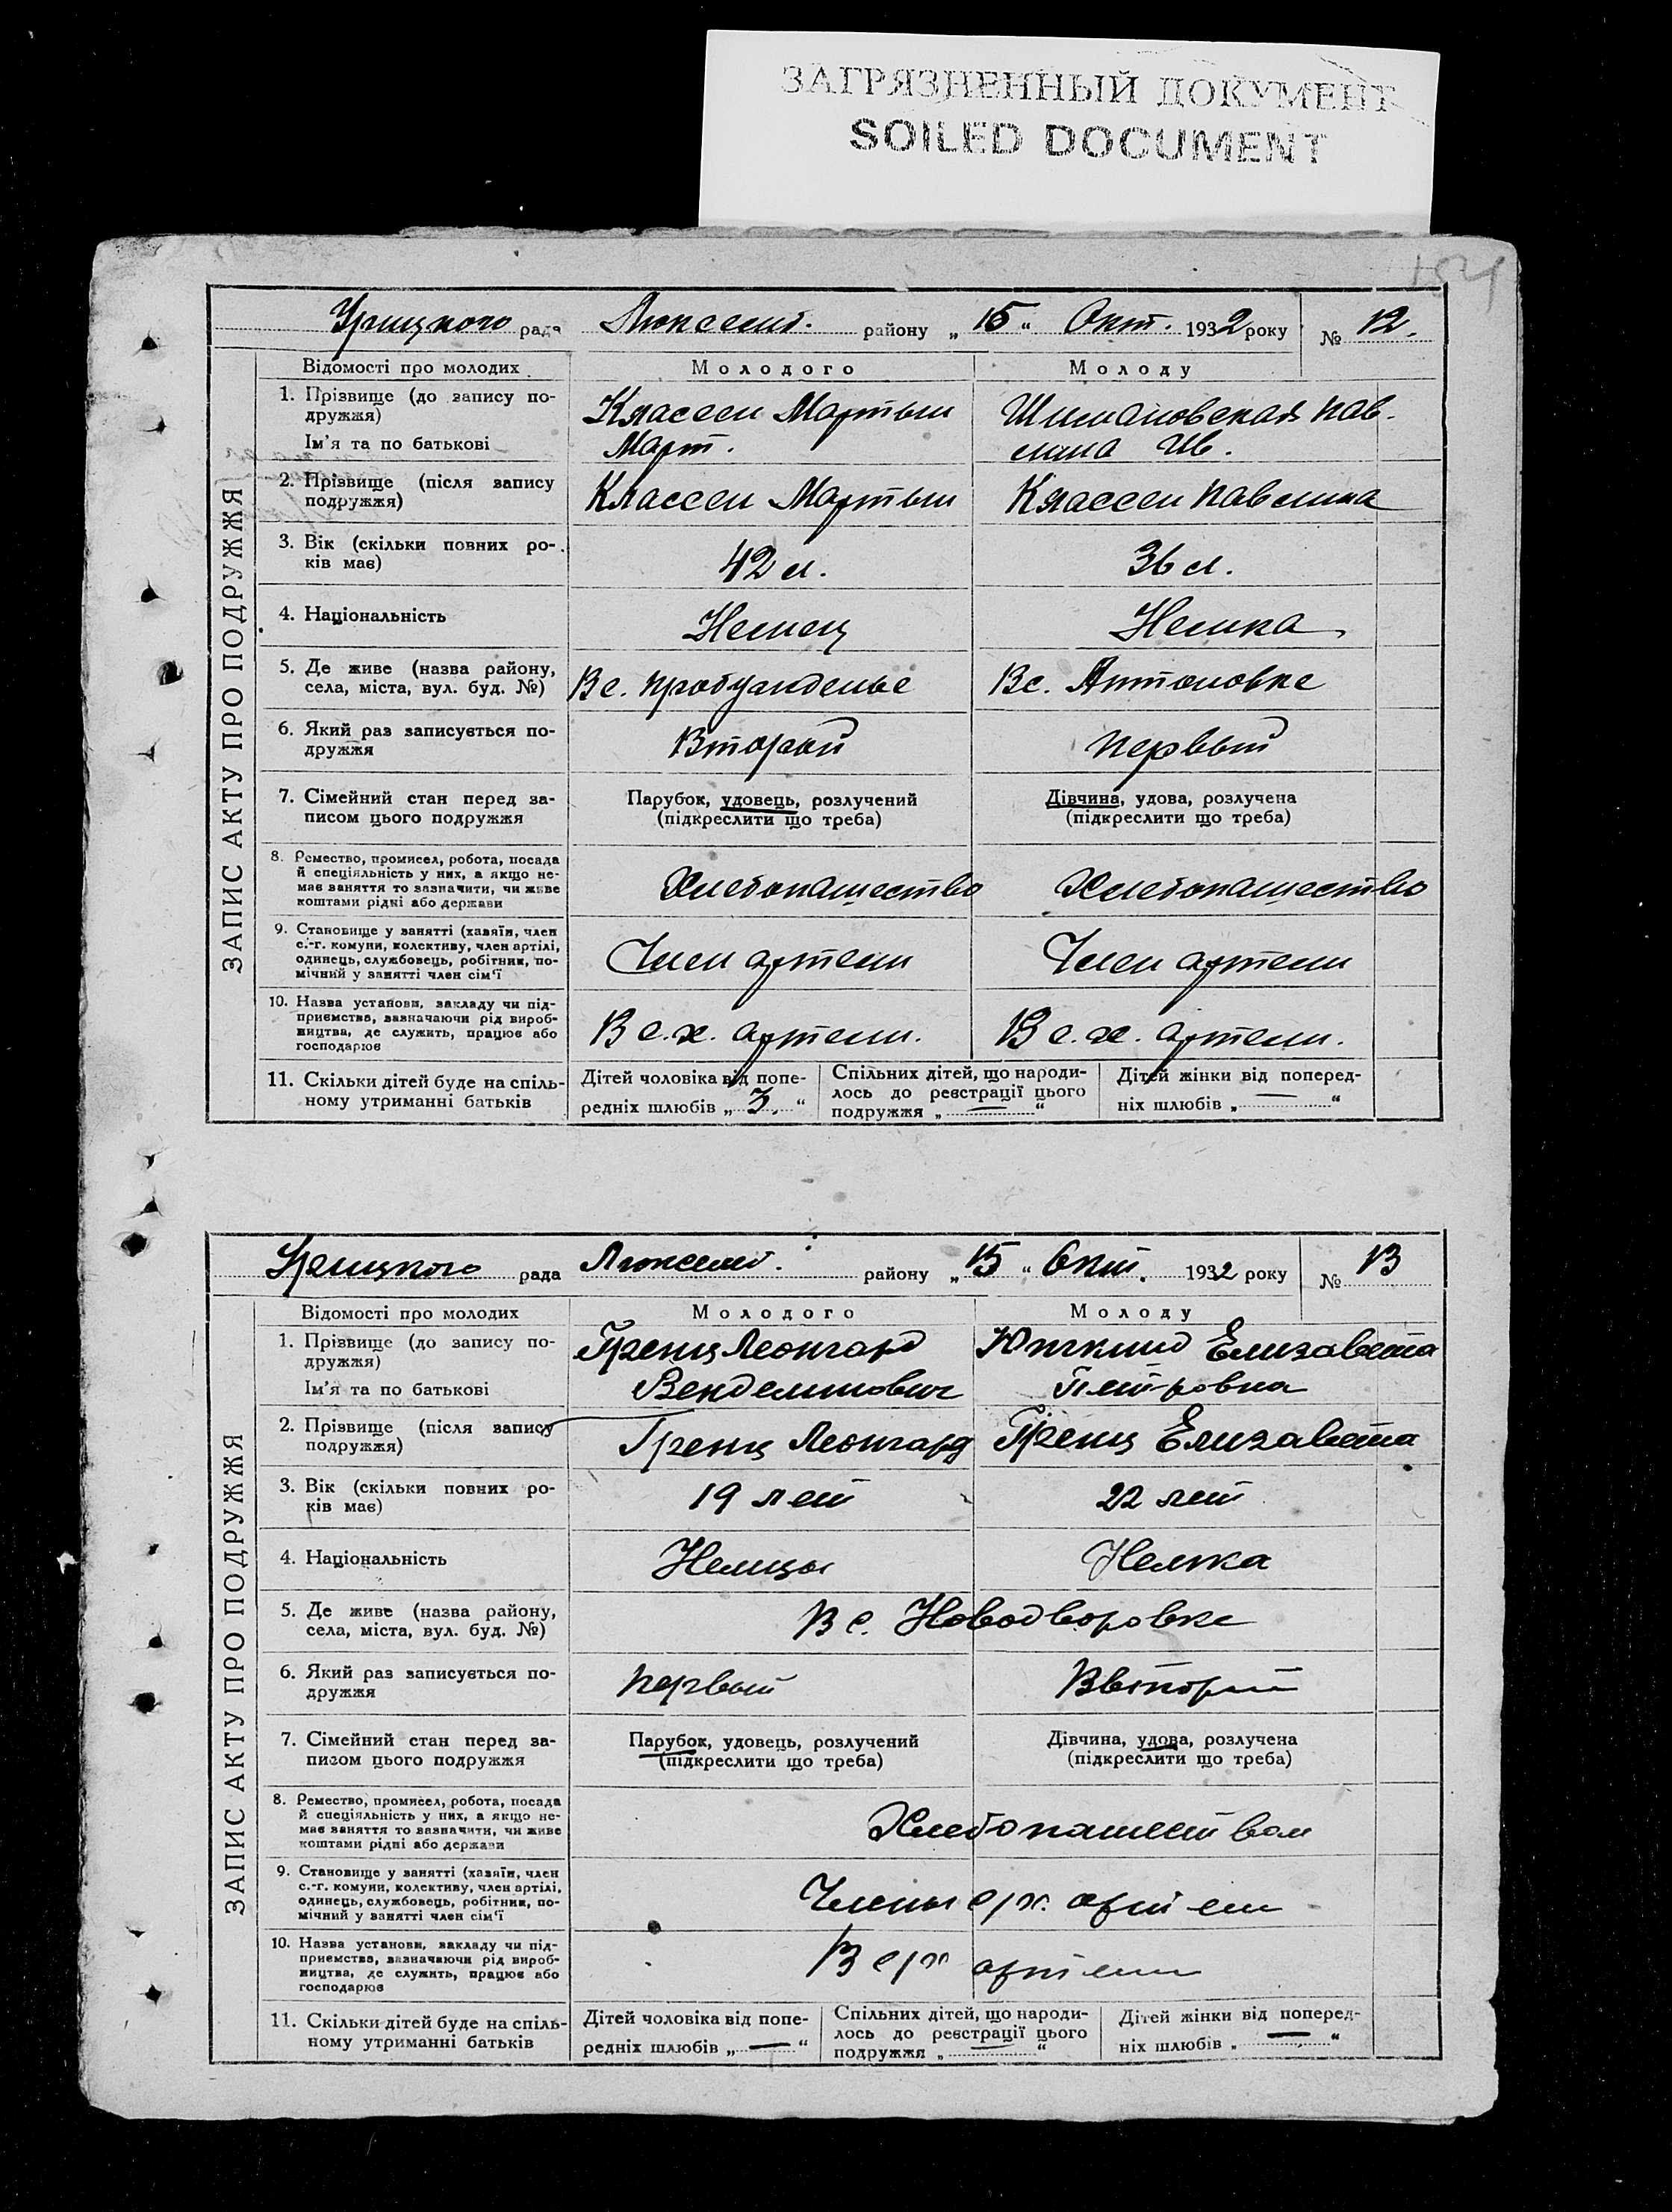 ЗАГРЯЗНЕННЫЙ ДОКУМЕНТ
SOILED DOCUMENT
154
Урицкого рада Люксемб. району „15“ Окт. 1932 року № 12.
ЗАПИС АКТУ ПРО ПОДРУЖЖЯ
Відомості про молодих Молодого Молоду
1. Прізвище (до запису по-
дружжя)
Ім'я та по батькові
Классен Мартын
Март.
Шимановская Пав-
лина Ив.
2. Прізвище (після запису
подружжя)
Классен Мартын Классен Павлина
3. Вік (скільки повних ро-
ків має)
42 л. 36 л.
4. Національність Немец Немка
5. Де живе (назва району,
села, міста, вул. буд. №)
В с. Пробужденье В с. Антоновке
6. Який раз записується по-
дружжя
Второй Первый
7. Сімейний стан перед за-
писом цього подружжя
Парубок, удовець, розлучений
(підкреслити що треба)
Дівчина, удова, розлучена
(підкреслити що треба)
8. Ремество, промисел, робота, посада
й спеціяльність у них, а якщо не-
має заняття то зазначити, чи живе
коштами рідні або держави
Хлебопашество Хлебопашество
9. Становище у занятті (хазяїн, член
с.-г. комуни, колективу, член артілі,
одинець, службовець, робітник, по-
мічний у занятті член сім'ї
Член артели Член артели
10. Назва установи, закладу чи під-
приємства, зазначаючи рід вироб-
ництва, де служить, працює або
господарює
В с.х. артели. В с.х. артели.
11. Скільки дітей буде на спіль-
ному утриманні батьків
Дітей чоловіка від попе-
редніх шлюбів „3.“
Спільних дітей, що народи-
лось до реєстрації цього
подружжя „—“
Дітей жінки від поперед-
ніх шлюбів „—“
Урицкого рада Люксемб. району „15“ Окт. 1932 року № 13
ЗАПИС АКТУ ПРО ПОДРУЖЖЯ
Відомості про молодих Молодого Молоду
1. Прізвище (до запису по-
дружжя)
Ім'я та по батькові
Гренц Леонгард
Венделинович
Елизавета
Петровна
2. Прізвище (після запису
подружжя)
Гренц Леонгард Гренц Елизавета
3. Вік (скільки повних ро-
ків має)
19 лет 22 лет
4. Національність Немцы Немка
5. Де живе (назва району,
села, міста, вул. буд. №)
В с. Новодворовке
6. Який раз записується по-
дружжя
Первый Ввторый
7. Сімейний стан перед за-
писом цього подружжя
Парубок, удовець, розлучений
(підкреслити що треба)
Дівчина, удова, розлучена
(підкреслити що треба)
8. Ремество, промисел, робота, посада
й спеціяльність у них, а якщо не-
має заняття то зазначити, чи живе
коштами рідні або держави
Хлебопашеством
9. Становище у занятті (хазяїн, член
с.-г. комуни, колективу, член артілі,
одинець, службовець, робітник, по-
мічний у занятті член сім'ї
Члены с/х. артели
10. Назва установи, закладу чи під-
приємства, зазначаючи рід вироб-
ництва, де служить, працює або
господарює
В с/х артели
11. Скільки дітей буде на спіль-
ному утриманні батьків
Дітей чоловіка від попе-
редніх шлюбів „—“
Спільних дітей, що народи-
лось до реєстрації цього
подружжя „—“
Дітей жінки від поперед-
ніх шлюбів „—“